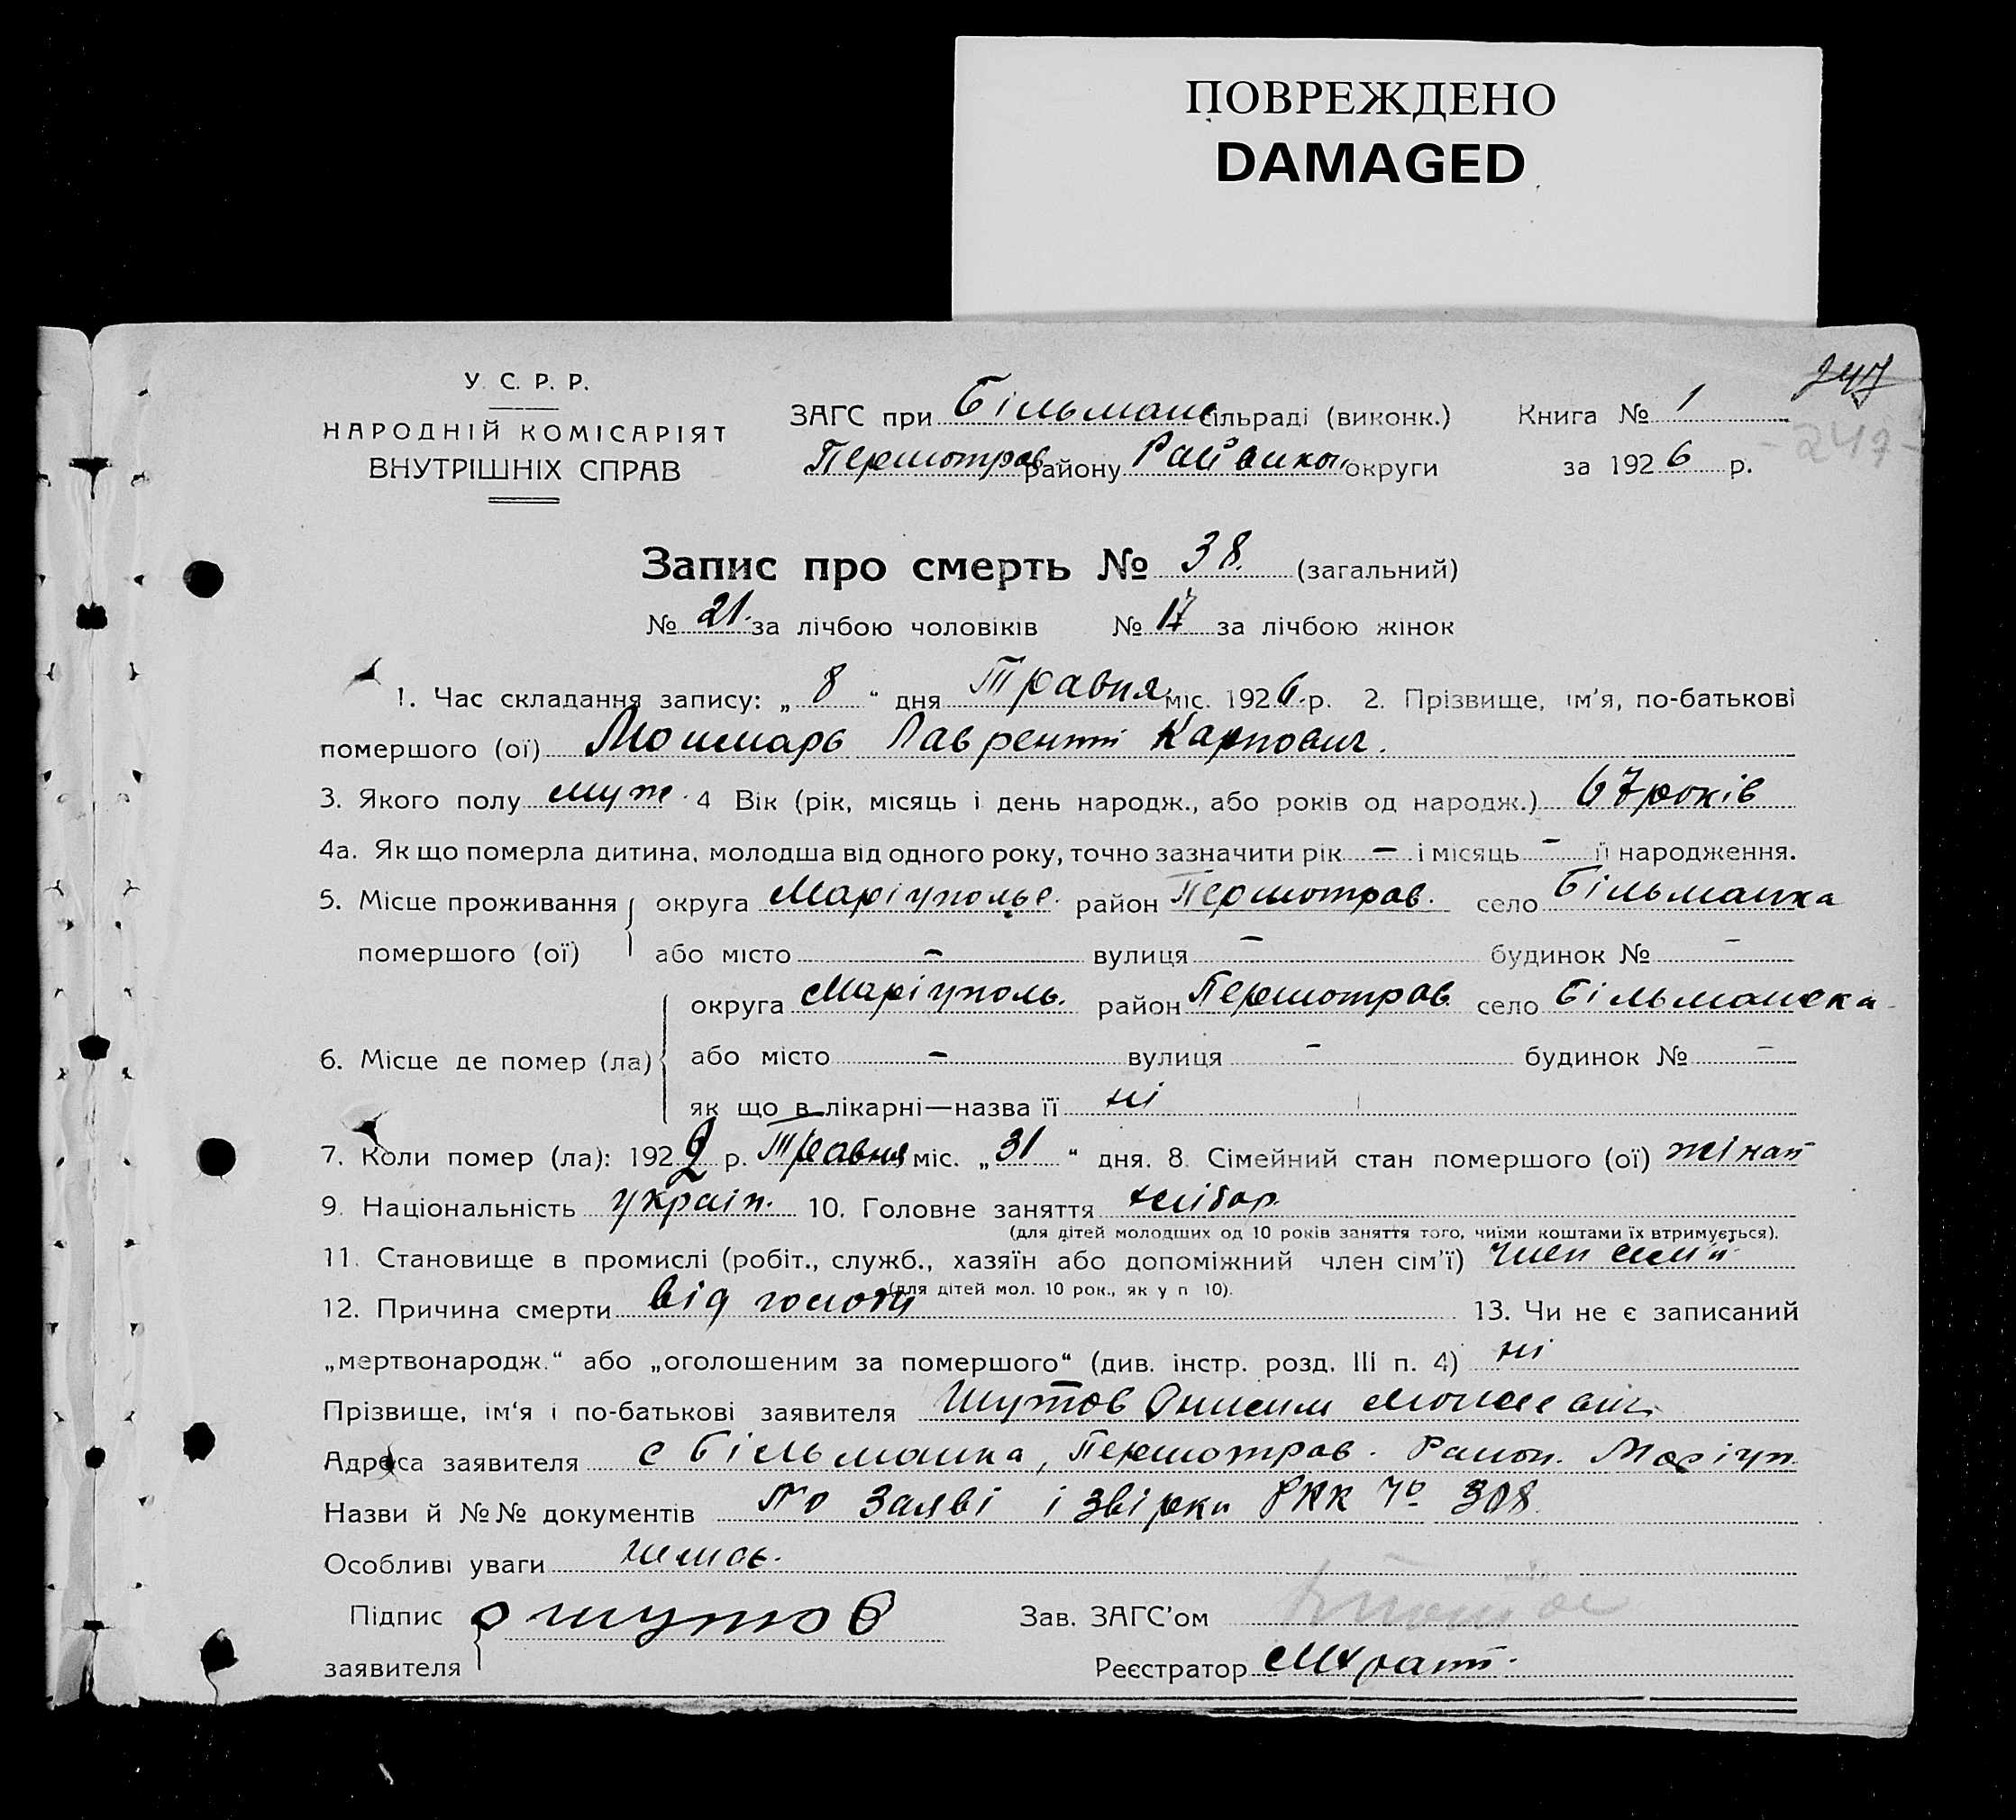 ПОВРЕЖДЕНО
DAMAGED
247
У. С. Р. Р.
НАРОДНІЙ КОМІСАРІЯТ
ВНУТРІШНІХ СПРАВ
ЗАГС при Більманс сільраді (виконк.) Книга № 1
- 247 -
Першотрав району Райвикон округи за 1926 р.
Запис про смерть № 38. (загальний)
№ 21. за лічбою чоловіків № 17 за лічбою жінок
1. Час складання запису: „ 8 “ дня Травня міс. 1926. р. 2. Прізвище, ім’я, по-батькові
помершого (ої) Лаврентій Карпович.
3. Якого полу муж. 4 Вік (рік, місяць і день народж., або років од народж.) 67 років
4а. Як що померла дитина, молодша від одного року, точно зазначити рік – і місяць – її народження.
5. Місце проживання округа район Першотрав. село Більманка
помершого (ої) або місто – вулиця – будинок № –
округа Маріуполь. район Першотрав село Більманска
6. Місце де помер (ла) або місто – вулиця – будинок № –
як що в лікарні—назва її ні
7. Коли помер (ла): 192 р. Травня міс. „ 31 “ дня. 8. Сімейний стан помершого (ої) жінат
9. Національність україн. 10. Головне заняття хлібор.
(для дітей молодших од 10 років заняття того, чиїми коштами їх втримується).
11. Становище в промислі (робіт., служб., хазяїн або допоміжний член сім’ї) член сим'ї
(для дітей мол. 10 рок., як у п 10).
12. Причина смерти від голоду 13. Чи не є записаний
„мертвонародж.“ або „оголошеним за помершого“ (див. інстр. розд. III п. 4) ні
Прізвище, ім‘я і по-батькові заявителя Шутов Онисим
Адреса заявителя с Більманка, Першотрав. Район. Маріуп.
Назви й №№ документів По заяві і звірки РКК № 308.
Особливі уваги
Підпис О Шутов Зав. ЗАГС’ом
заявителя Реєстратор